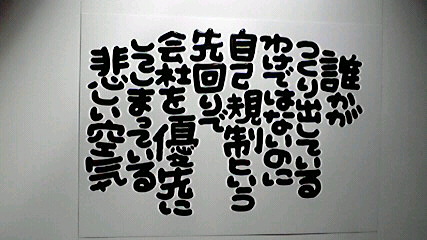 誰かが
つくり出している
わけではないのに
自己規制という
先回りで
会社を優先に
してしまっている
悲しい空気